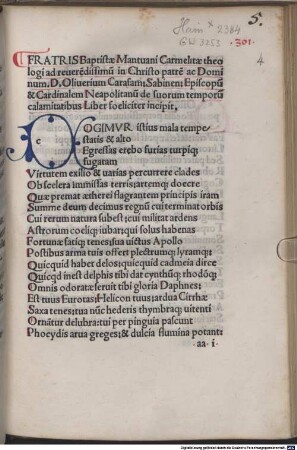 Hain * 2384
GW 3253
.301.
5.
4
FRATRIS Baptistæ Mantuani Carmelitæ theo
logi ad reuerēdissimū in Christo patrē ac Domi
num. D. Oliuerium Carafam: Sabinen: Episcopū
& Cardinalem Neapolitanū de suorum temporū
calamitatibus Liber foeliciter incipit,
e
OGIMVR istius mala tempe
statis & alto
Egressas erebo furias turpiq;
fugatam
Virtutem exilio & uarias percurrere clades
Ob scelera immissas terris: artemq; docere
Quæ premat ætherei flagrātem principis iram
Summe deum decimus regnū cui terminat orbis
Cui rerum natura subest: cui militat ardens
Astrorum coeliq; iubar: qui solus habenas
Fortunæ fatiq; tenes: sua uictus Apollo
Postibus arma tuis offert plectrumq; lyramq;:
Quicquid habet delos: quicquid cadmeia dirce
Quicqd inest delphis tibi dat cynthūq; rhodōq;
Omnis odoratæ seruit tibi gloria Daphnes:
Est tuus Eurotas: Helicon tuus: ardua Cirrhæ
Saxa tenes: tua nūc hederis thymbraq; uirenti
Ornātur delubra: tui per pinguia pascunt
Phocydis arua greges: & dulcia flumina potant:
aa.i.